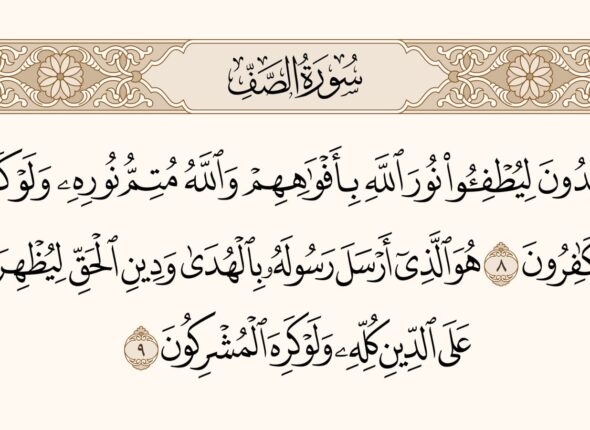 سُورَةُ الصَّفِّ
لِيُطْفِـُٔوا۟ نُورَ ٱللَّهِ بِأَفْوَٰهِهِمْ وَٱللَّهُ مُتِمُّ نُورِهِۦ وَلَوْ
هُوَ ٱلَّذِىٓ أَرْسَلَ رَسُولَهُۥ بِٱلْهُدَىٰ وَدِينِ ٱلْحَقِّ ٨
عَلَى ٱلدِّينِ كُلِّهِۦ وَلَوْ كَرِهَ ٱلْمُشْرِكُونَ ٩